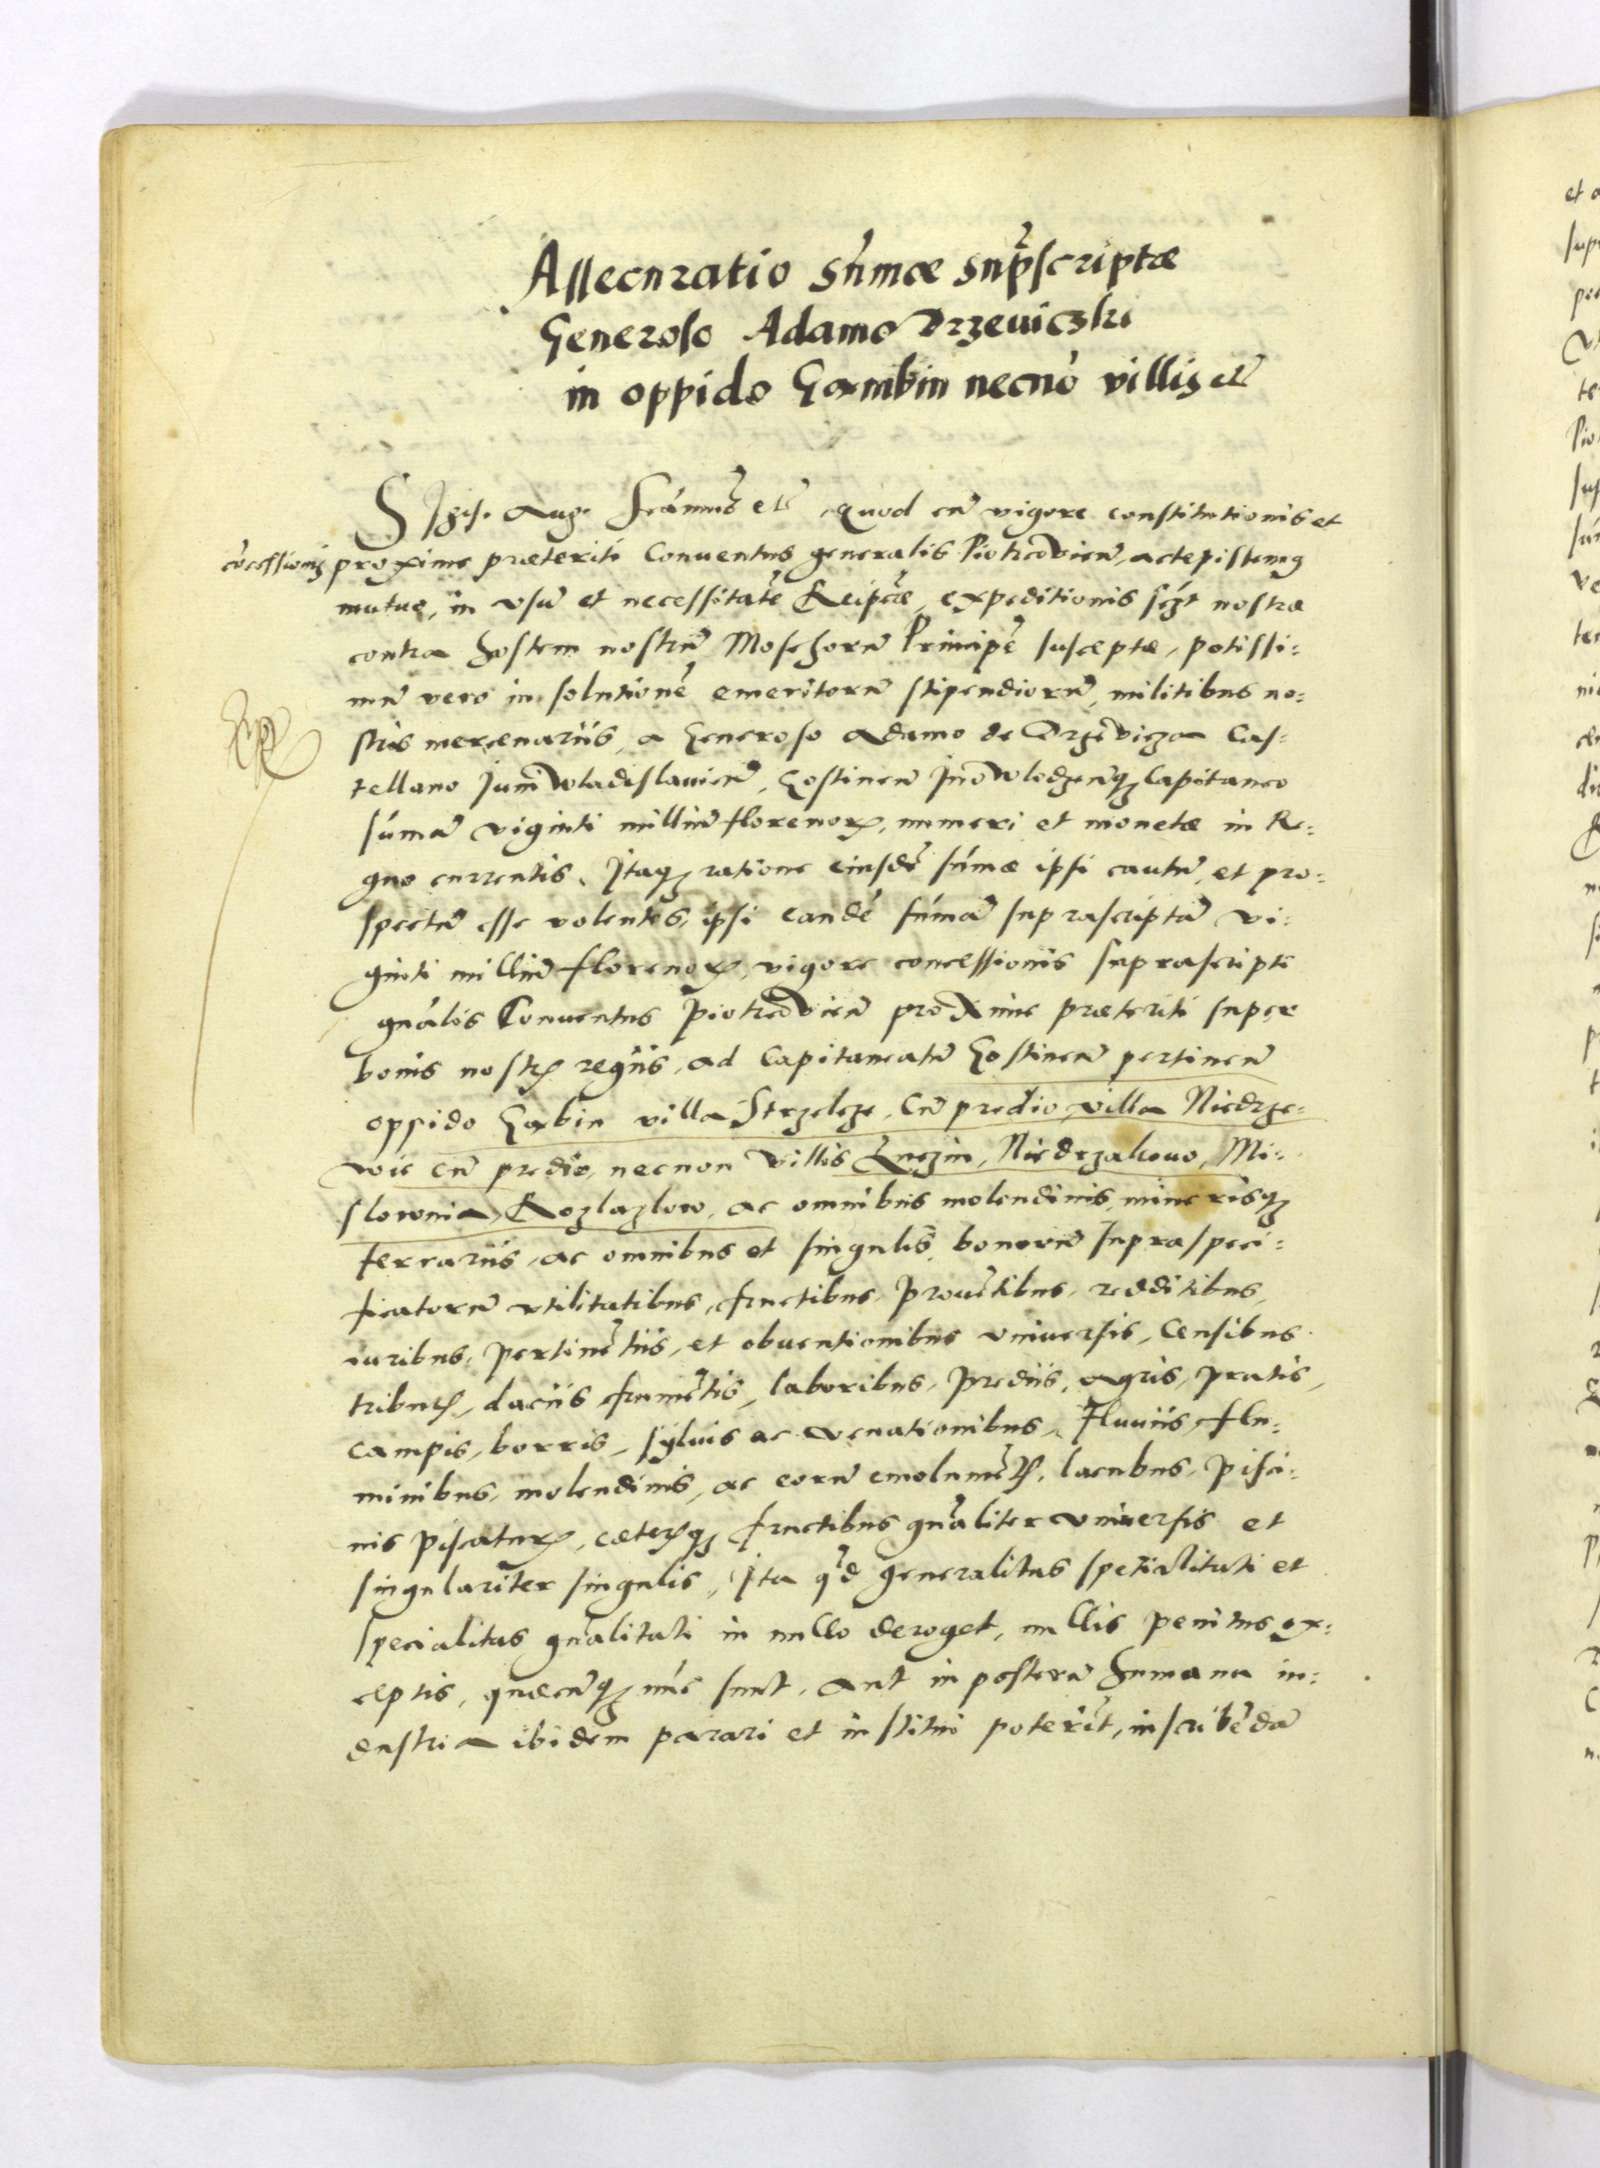 Assecuratio sum̃ae supr̃scriptae
Generoso Adamo Drzeviczki
in oppido Gambin necnõ villis etc̃
Sigis. Aug. Scãmus etc̃ quod cũ vigore constitutionis et
cõcessionis proxime praeteriti Conventus generalis Piotrcoviẽn, accepissemus
mutuo, in usũ et necessitatẽ Reipcae, expeditionis sc̃zt nostrae
contra hostem nostrũ Moschorũ Principẽ susceptae, potissi:
mũ vero in solutionẽ emeritorũ stipendiorũ, militibus no:
stris mercenariis, a Generoso Adamo de Drzevicza Cas:
tellano Juniwladislaviẽn, Gostineñ Inowlodzeñq3 Capitaneo
sum̃ã viginti milliũ florenor̃, numeri et monetae in Re:
gno currentis. Itaq3 ratione eiusdẽ sum̃ae ipsi cautũ, et pro:
spectũ esse volentes, ipsi eandẽ sum̃ã suprascriptã vi:
ginti milliũ florenor̃, vigore concessionis suprascripti
gñalis Conventus Piotrcoviẽn proxime praeteriti super
bonis nostr̃ regiis, ad Capitaneatũ Gostineñ pertineñ
oppido Gãbin villa Strzelcze, Cũ predio, villa Niedrze:
wie cũ predio, necnon villis Luczin, Niedrzakowo, Mi:
slownia, Kozlazlow, ac omnibus molendinis, minerisq3
ferrariis, ac omnibus et singulis bonorũ supraspeci:
ficatorũ utilitatibus, fructibus, provẽtibus, redditibus,
iuribus, pertinẽtiis, et obventionibus universis, Censibus
tribut̃, daciis frumẽtis, laboribus, prediis, agris, pratis,
campis, borris, sylvis ac venationibus, Fluviis, flu:
minibus, molendinis, ac eorũ emolumẽt̃, lacubus, pisci:
nis piscatur̃, caeter̃q3 fructibus gñaliter universis et
singulariter singulis, Ita q̃d generalitas specialitati et
specialitas gñalitati in nullo deroget, nullis penitus ex:
ceptis, quaecũq3 nũc sunt, aut in posterũ humana in:
dustria ibidem parari et institui poterit, inscribẽdã